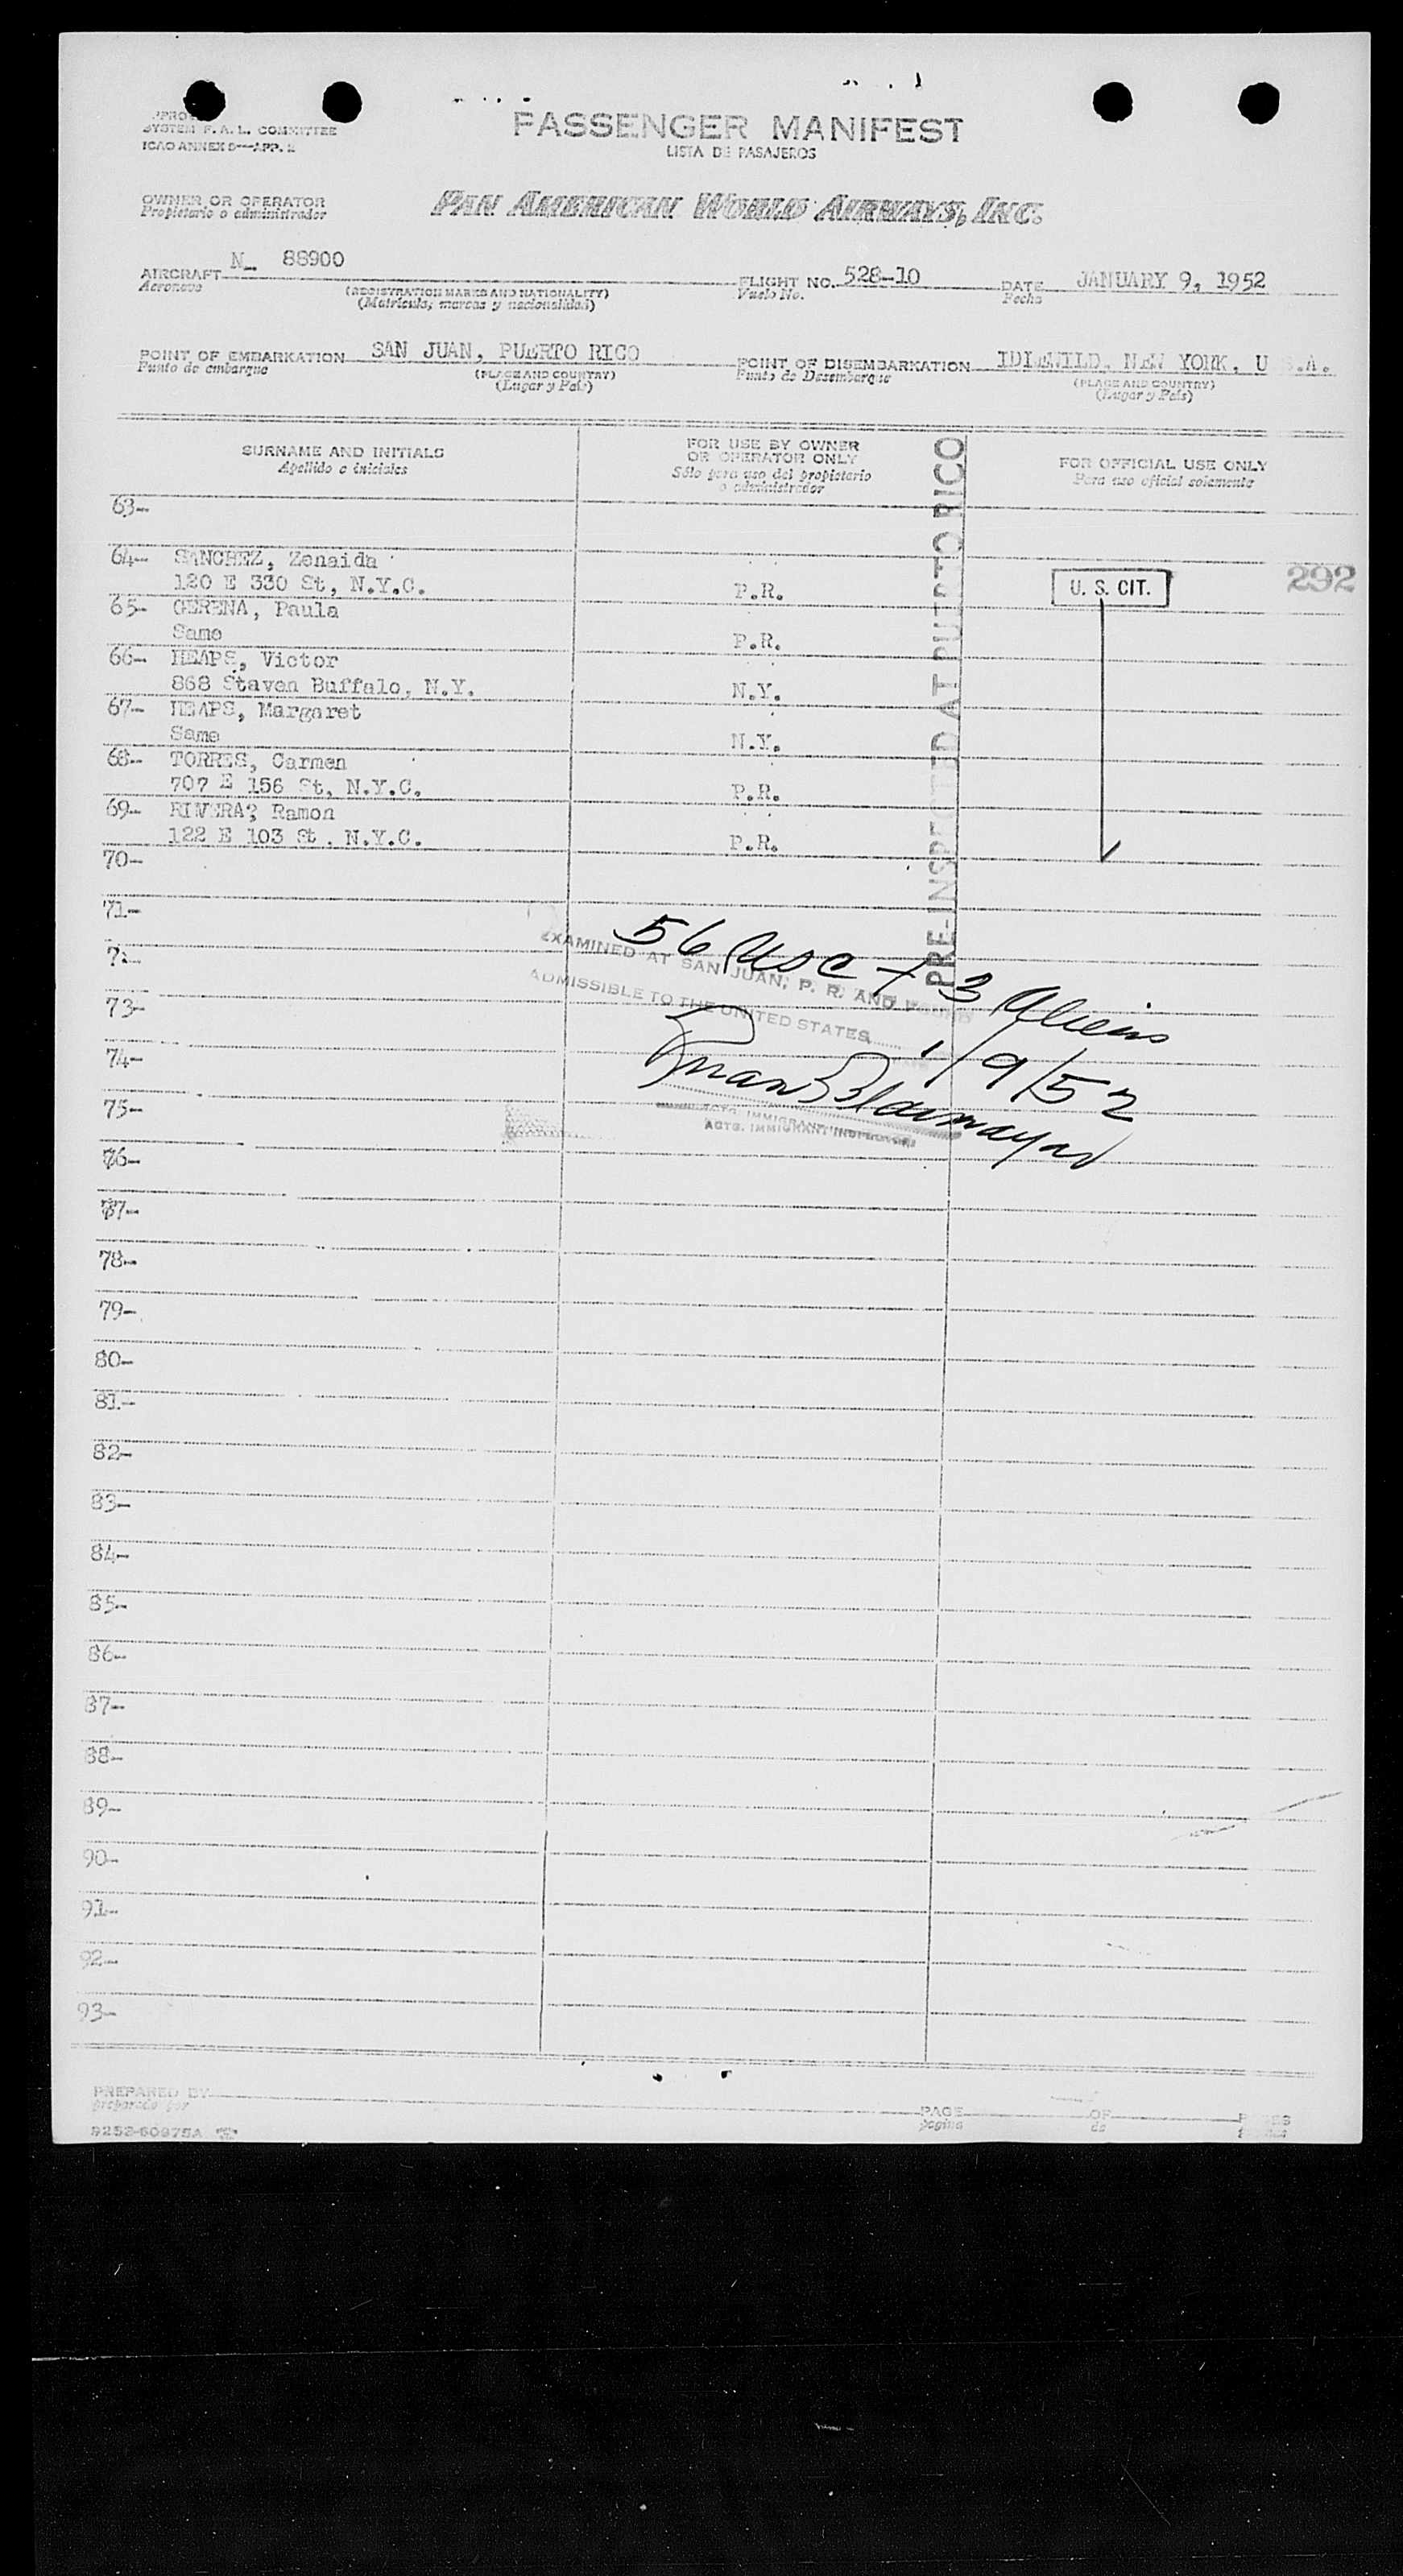 SYSTEM F.A.L. COMMITTEE
ICAO ANNEX 9—APP. 2
PASSENGER MANIFEST
LISTA DE PASAJEROS
OWNER OR OPERATOR
Propietario o administrador
PAN AMERICAN WORLD AIRWAYS, INC.
AIRCRAFT N- 88900
Aeronave
(REGISTRATION MARKS AND NATIONALITY)
(Matrícula, marcas y nacionalidad)
FLIGHT NO. 528-10
Vuelo No.
DATE JANUARY 9, 1952
Fecha
POINT OF EMBARKATION SAN JUAN, PUERTO RICO
Punto de embarque
(PLACE AND COUNTRY)
(Lugar y País)
POINT OF DISEMBARKATION IDLEWILD, NEW YORK, U S.A.
Punto de Desembarque
(PLACE AND COUNTRY)
(Lugar y País)
SURNAME AND INITIALS
Apellido e iniciales
FOR USE BY OWNER
OR OPERATOR ONLY
Sólo para uso del propietario
o administrador
FOR OFFICIAL USE ONLY
Para uso oficial solamente
PRE-INSPECTED AT PUERTO RICO
63-
64- SANCHEZ, Zenaida
120 E 330 St, N.Y.C. P.R. U. S. CIT. 292
65- GERENA, Paula
Same P.R.
66- HEAPS, Victor
868 Staven Buffalo, N.Y. N.Y.
67- HEAPS, Margaret
Same N.Y.
68- TORRES, Carmen
707 E 156 St, N.Y.C. P.R.
69- RIVERA, Ramon
122 E 103 St, N.Y.C. P.R.
70-
71-
72-
73-
74-
75-
76-
77-
78-
79-
80-
81-
82-
83-
84-
85-
86-
87-
88-
89-
90-
91-
92-
93-
56 USC + 3 Aliens
EXAMINED AT SAN JUAN, P. R. AND FOUND
ADMISSIBLE TO THE UNITED STATES
1/9/52
ACTG. IMMIGRANT INSPECTOR
PREPARED BY
preparado por
PAGE OF PAGES
página de
9252-60975A